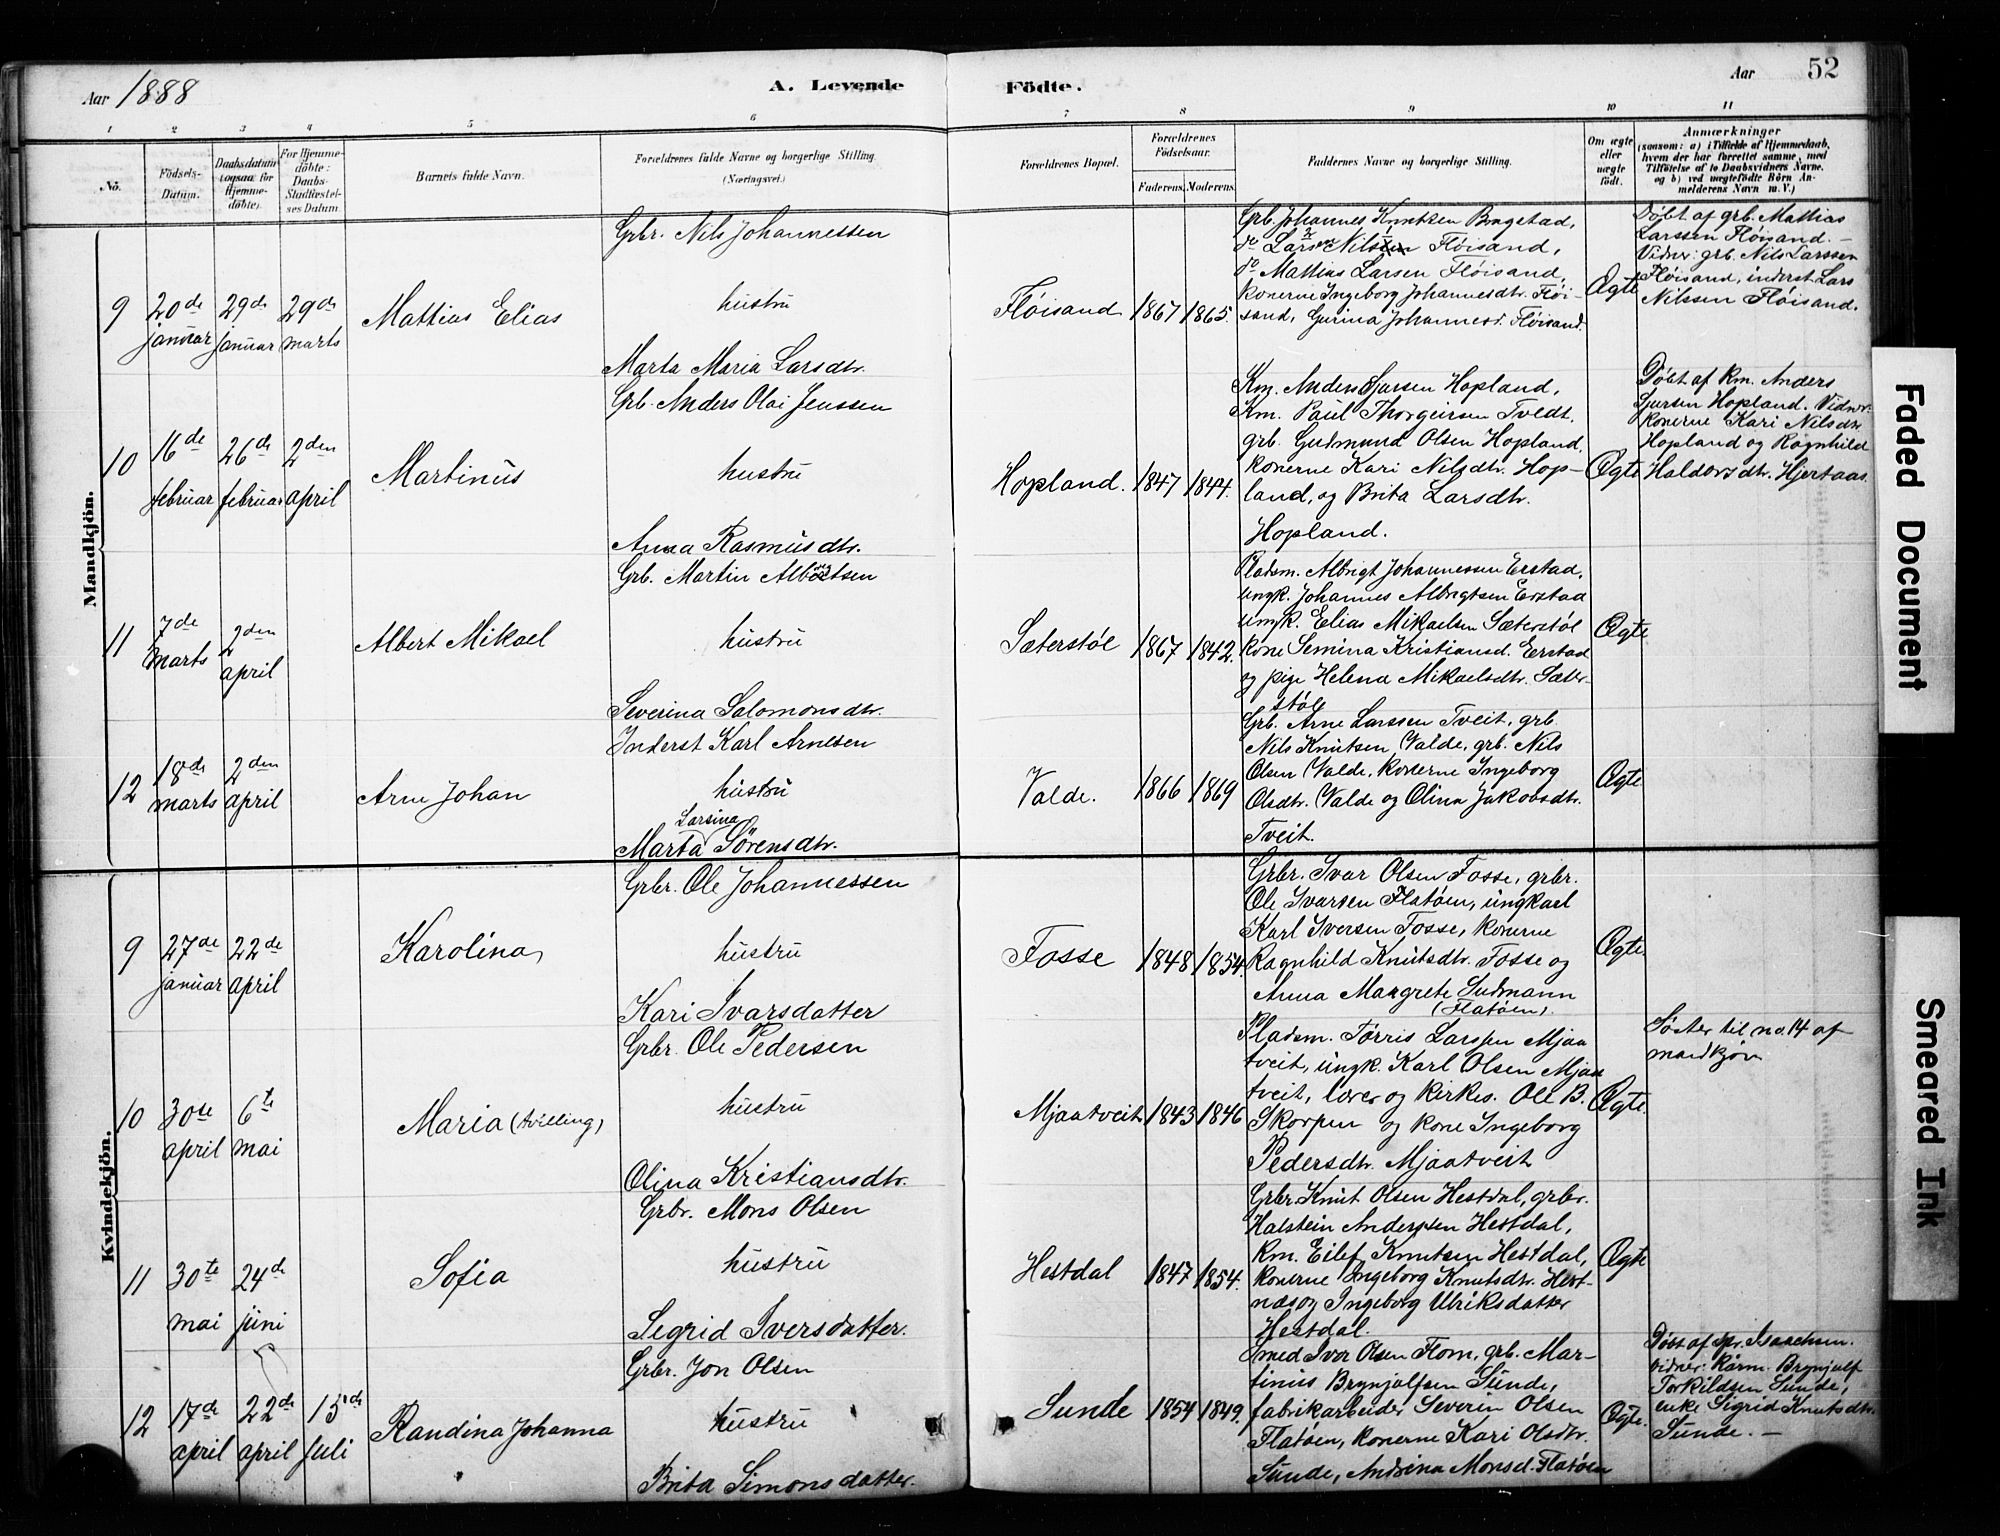 Aar 1888
A. Levende
Födte.
Aar
52
1 2 3 4 5 6 7 8 9 10 11
No.
Födsels-Datum.
Daabsdatum (ogsaa for Hjemme-döbte).
For Hjemme-döbte: Daabs-Stadfæstel-ses Datum.
Barnets fulde Navn.
Forældrenes fulde Navne og borgerlige Stilling.
(Næringsvei.)
Forældrenes Bopæl.
Forældrenes Födselsaar.
Faderens. Moderens.
Faddernes Navne og borgerlige Stilling.
Om ægte eller uægte födt.
Anmærkninger
(saasom: a) i Tilfælde af Hjemmedaab, hvem der har forrettet samme, med Tilföielse af to Daabsvidners Navne, og b) ved uægtefödte Börn Anmelderens Navn m. V.)
Mandkjön.
9
20de januar
29de januar
29de marts
Mattias Elias
Grbr. Nils Johannessen
hustru
Marta Maria Larsdtr.
Fløisand
1867
1865.
Grb. Johannes Knutsen Bragstad,
do Lars Nilsen Fløisand,
do Mattias Larsen Fløisand,
konerne Ingeborg Johannesdtr. Fløi-
sand, Gurina Johannesd. Fløisand.
Ægte
Døbt af grb. Mattias
Larssen Fløisand. –
Vidner: grb. Nils Larssen
Fløisand, inderst Lars
Nilssen Fløisand.
10
16de februar
26de februar
2den april
Martinus
Grb. Anders Olai Jenssen
hustru
Anna Rasmusdtr.
Hopland.
1847
1844.
Km. Anders Sjursen Hopland,
Km. Paul Thorgeirsen Tvedt,
grb. Gudmund Olsen Hopland,
konerne Kari Nilsdtr. Hop-
land, og Brita Larsdtr.
Hopland.
Ægte
Døbt af Km. Anders
Sjursen Hopland. Vidner:
konerne Kari Nilsdtr
Hopland og Ragnhild
Haldorsdtr. Hjertaas.
11
7de marts
2den april
Albert Mikael
Grb. Martin Albertsen
hustru
Severina Salomonsdtr.
Sæterstøl
1867
1842.
Pladsm. Albrigt Johannessen Erstad,
ungk. Johannes Albrigtsen Erstad
ungk. Elias Mikaelsen Sæterstøl
kone Semina Kristiansd. Erstad
og pige Helena Mikaelsdtr. Sæter-
støl
Ægte
12
18de marts
2den april
Arne Johan
Inderst Karl Arnesen
hustru
Larsina
Marta Sørensdtr.
Valde.
1866
1869
Grb. Arne Larssen Tveit, grb.
Nils Knutsen Valde, grb. Nils
Olsen Valde, konerne Ingeborg
Olsdtr. Valde og Olina Jakobsdtr.
Tveit.
Ægte
Kvindekjön.
9
27de januar
22de april
Karolina
Grbr. Ole Johannessen
hustru
Kari Ivarsdatter
Fosse
1848
1854.
Grbr. Ivar Olsen Fosse, grbr.
Ole Ivarsen Flatøen, ungkael
Karl Iversen Fosse, konerne
Ragnhild Knutsdtr. Fosse og
Anna Margrete Sudmann
(Flatøen).
Ægte.
10
30te april
6te mai
Maria (tvilling)
Grbr. Ole Pedersen
hustru
Olina Kristiansdtr.
Mjaatveit
1843
1846
Pladsm. Tørris Larssen Mjaa
tveit, ungk. Karl Olsen Mjaa
tveit, lærer og kirkes. Ole B.
Skorpen og kone Ingeborg
Pedersdtr. Mjaatveit
Ægte.
Søster til no. 14 af
mandkjøn
11
30te mai
24de juni
Sofia
Grbr. Mons Olsen
hustru
Segrid Iversdatter.
Hestdal
1847
1854.
Grbr. Knut Olsen Hestdal, grbr.
Halstein Anderssen Hestdal,
Km. Eilef Knutsen Hestdal,
konerne Ingeborg Knutsdtr. Hest-
næs og Ingeborg Ulriksdatter
Hestdal.
Ægte
12
17de april
22de april
15de Juli
Randina Johanna
Grbr. Jon Olsen
hustru
Brita Simonsdatter.
Sunde
1854
1849.
med Ivar Olsen Flom, grb. Mar-
tinus Brynjulfsen Sunde,
fabrikarbeider Severin Olsen
Flatøen, konerne Kari Olsdtr.
Sunde, Andrina Monsd. Flatøen
Ægte.
Døbt af spr. Isaachsen.
vidner: Kårm. Brynjulf
Torkildsen Sunde,
enke Sigrid Knutsdtr.
Sunde. –
Faded Document
Smeared Ink